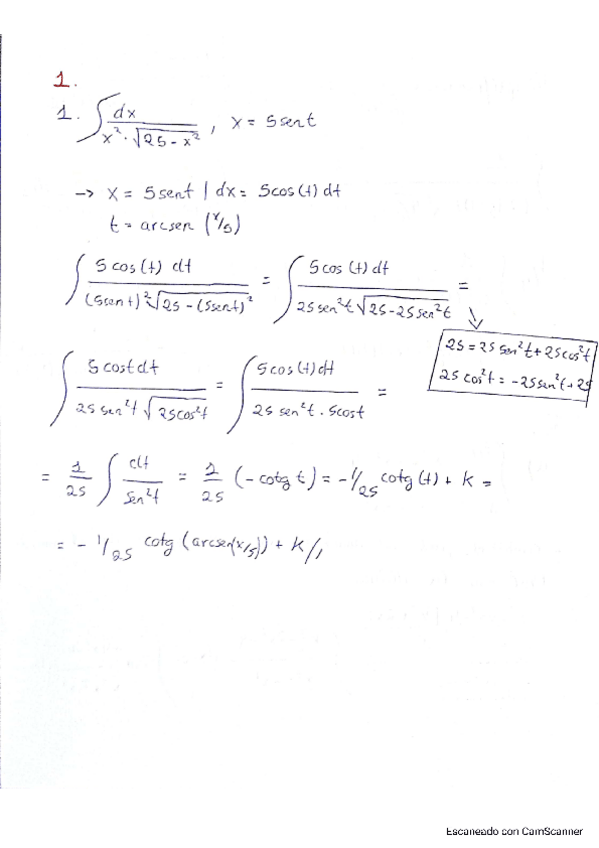 1.
1. ∫ dx / (x² · √(25 - x²)) , x = 5sent
→ x = 5sent | dx = 5cos(t) dt
t = arcsen (x/5)
∫ 5 cos(t) dt / ((5sent)² √(25 - (5sent)²)) = ∫ 5cos(t) dt / (25 sen²t √(25-25sen²t)) =
25 = 25 sen²t + 25cos²t
25 cos²t = -25sen²t + 25
∫ 5 cost dt / (25 sen²t √(25cos²t)) = ∫ 5cos(t) dt / (25 sen²t . 5cost) =
= 1/25 ∫ dt / sen²t = 1/25 (-cotg t) = -1/25 cotg (t) + k =
= - 1/25 cotg (arcsen(x/5)) + k //
Escaneado con CamScanner